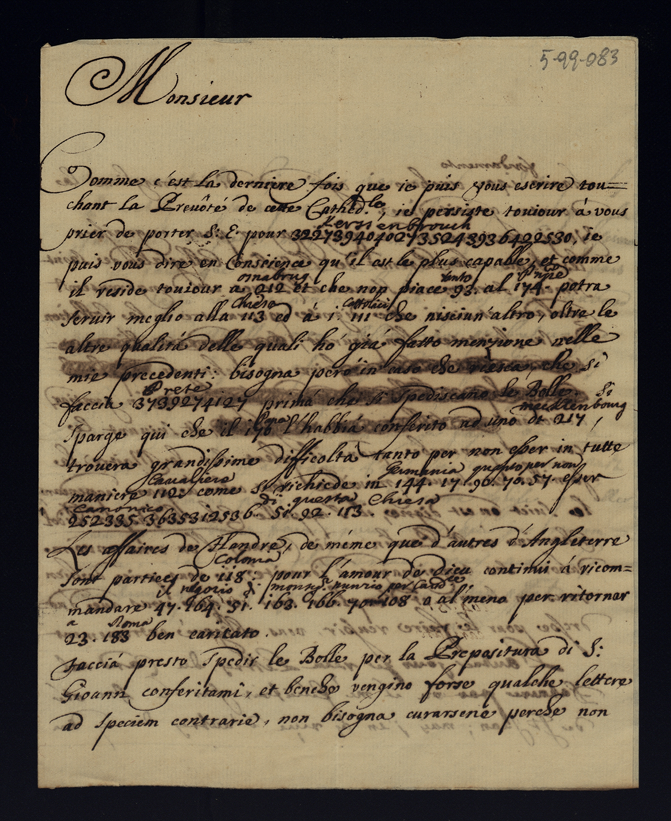 5-99-083
Monsieur
Comme c'est la derniere fois que ie puis vous escrire tou=
chant la Prevôté de cette Cathed.le, ie persiste touiour à vous
prier de porter S. E. pour 32273940402735243936422530, ie
puis vous dire en Conscience qu'il est le plus capable, et comme
osnabrug Papa
il reside touiour a 212 et che non piace 93. al 174. potra
Chiesa Cattolici
servir meglio alla 113 ed à i. 111 che nisciun'altro, oltre le
altre qualità delle quali hò gia fatto menzione nelle
mie precedenti: bisogna però in caso che riesca, che si
Prete
faccia 373927412 prima che si spediscano le Bolle. Si
mecklenbourg
sparge qui che il 176 l'habbia conferito ad uno di 217,
trovera grandissime difficoltà tanto per non esser in tutte
Cavaliere Germania quanto per non
maniere 112. come si richiede in 144. 17. 96. 70. 57. esser
Canonico di questa Chiesa
252335. 3635312536. 51. 92. 113
Les affaires de Flandre, de méme que d'autres d'Angleterre
Colonia
sont parties de 118. pour l'amour de Dieu continui à ricom=
il negozio di monsr nunzio per
mandare 47. 164. 51. 163. 166. 70. 108 o al meno per ritornar
a Roma
23. 183 ben caritato
Faccia presto spedir le Bolle per la Prepositura di S:
Gioann conferitami, et benche vengino forse qualche lettere
ad speciem contrarie, non bisogna curarsene perche non